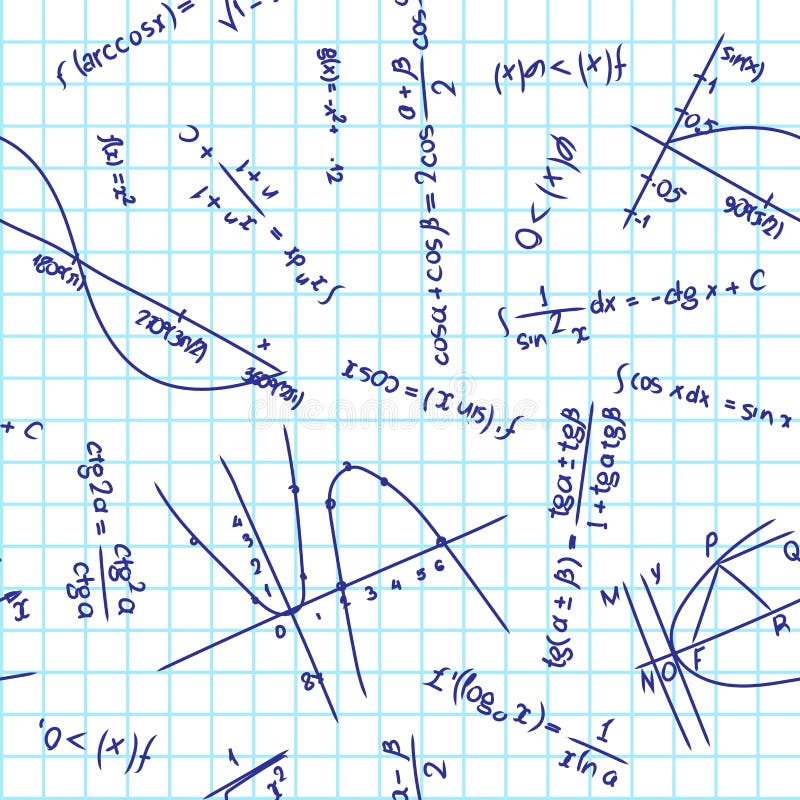 f(arccosx)=
√-
g(x) = -x² + 12
cosα + cosβ = 2cos (α + β)/2 cos
f(x) > g(x)
sin(x)
1
0.5
-0.5
-1
90º(π/2)
f(x) = x²
∫xⁿdx = xⁿ⁺¹/n+1 + C
g(x) > 0
180º(π)
270º(3π/2)
360º(2π)
∫ 1/sin²x dx = -ctg x + C
f'(sin x) = cosx
∫cos x dx = sin x
+ C
ctg2a = ctg²a/ctga
tg(α ± β) = tgα ± tgβ/1 + tgα tgβ
4
3
2
1
0
1
2
3
4
5
6
8
P
Q
R
M
y
N
O
F
x
f'(logₐ x) = 1/x ln a
f(x) > 0,
1/x²
α - β/2
dreamstime